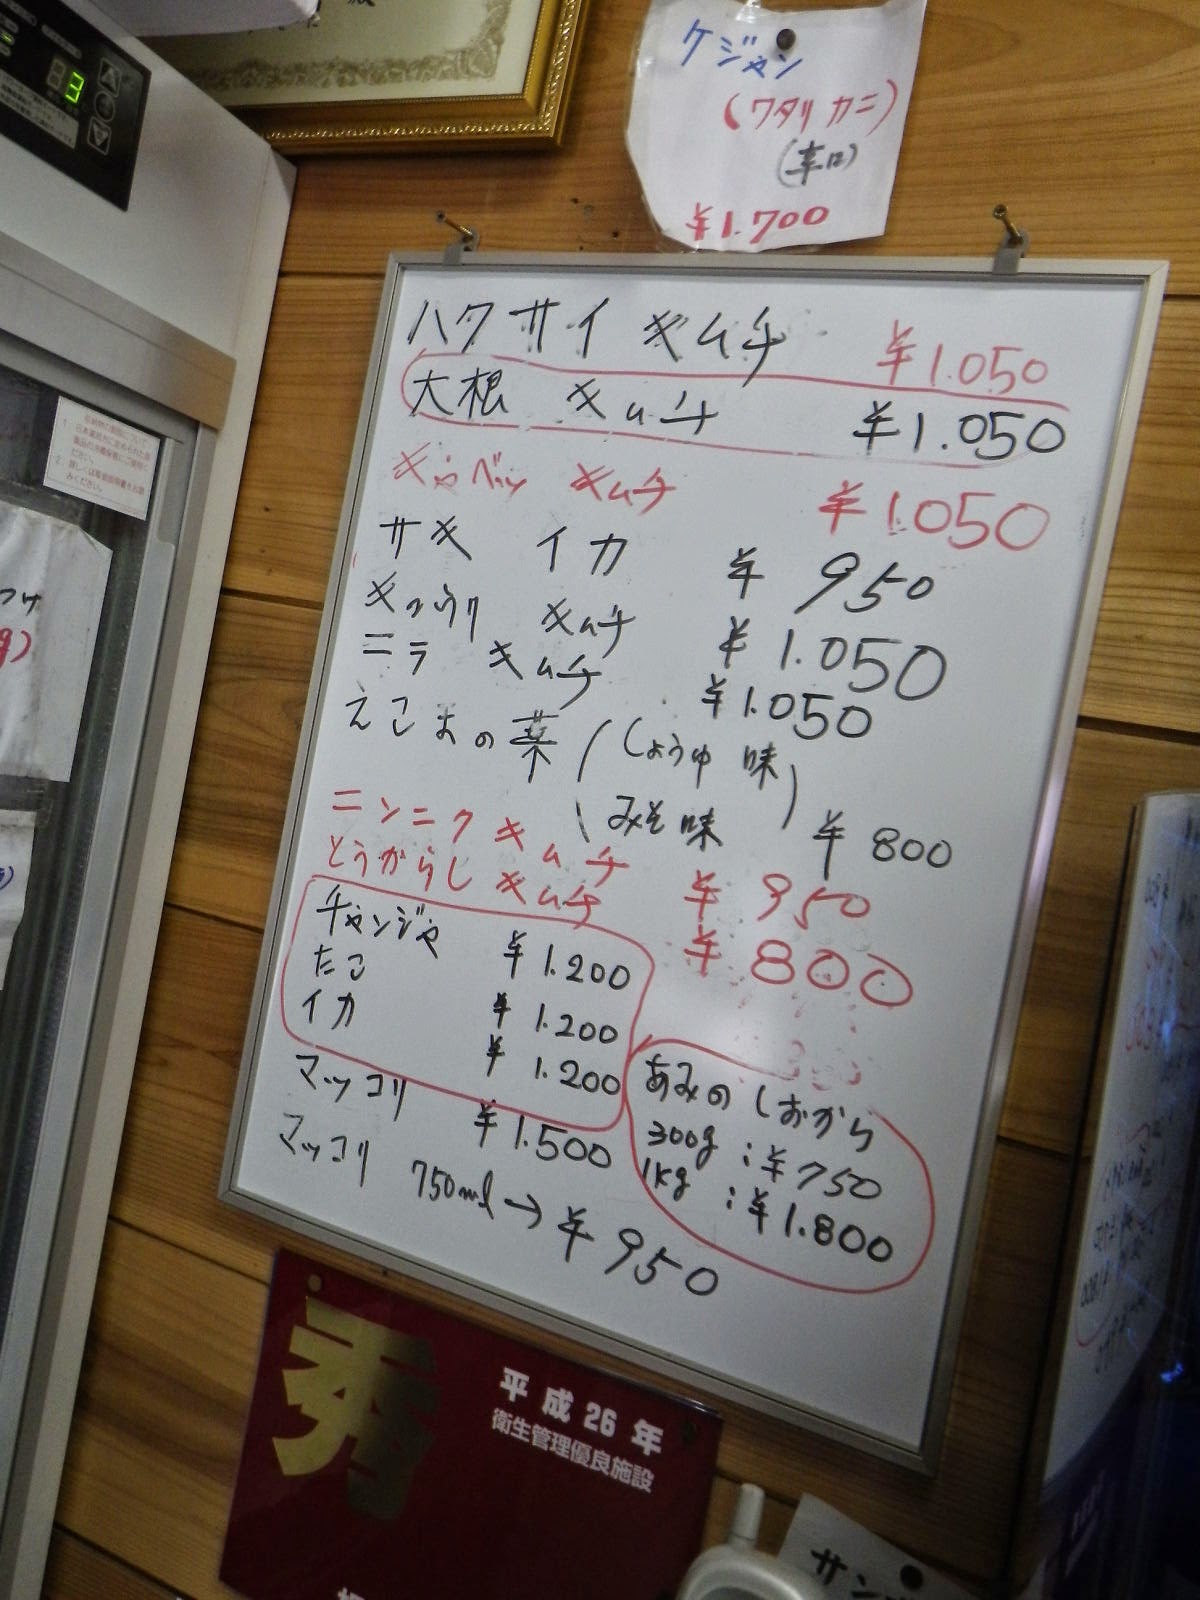 ケジャン
(ワタリカニ)
(辛口)
¥1.700
ハクサイ キムチ ¥1.050
大根 キムチ ¥1.050
キャベツ キムチ ¥1.050
サキ イカ ¥950
キュウリ キムチ ¥1.050
ニラ キムチ ¥1.050
えごまの葉 (しょうゆ 味
みそ味) ¥800
ニンニク キムチ ¥950
とうがらし キムチ ¥800
チャンジャ ¥1.200
たこ ¥1.200
イカ ¥1.200
マッコリ ¥1.500
マッコリ 750ml→¥950
あみの しおから
300g:¥750
1kg:¥1.800
秀
平成26年
衛生管理優良施設
3